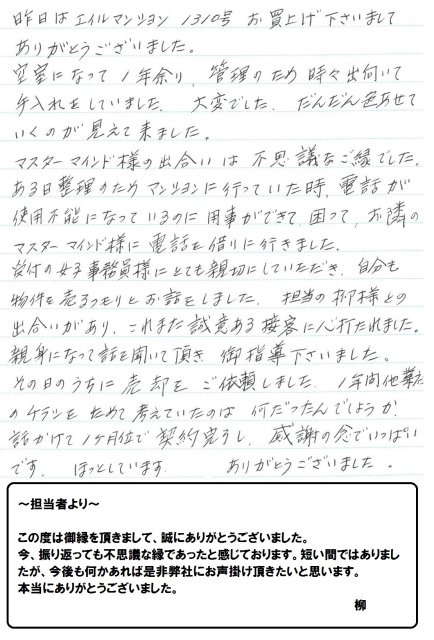 昨日はエイルマンション 1310号 お買上げ下さいまして
ありがとうございました。
空室になって 1年余り、管理のため時々出向いて
手入れをしていました。大変でした。だんだん色あせて
いくのが見えて来ました。
マスターマインド様の出合いは不思議なご縁でした。
ある日整理のためマンションに行っていた時、電話が
使用不能になっているのに用事ができて、困って、お隣の
マスターマインド様に電話を借りに行きました。
受付の女子事務員様にとても親切にしていただき、自分も
物件を売るつもりとお話をしました。担当の柳様との
出合いがあり、これまた誠意ある接客に心打たれました。
親身になって話を聞いて頂き、御指導下さいました。
その日のうちに売却をご依頼しました。1年間他業者
のチラシをためて考えていたのは何だったんでしょうか。
話かけて1ヶ月位で契約完了し、感謝の念でいっぱい
です。ほっとしています。ありがとうございました。
～担当者より～
この度は御縁を頂きまして、誠にありがとうございました。
今、振り返っても不思議な縁であったと感じております。短い間ではありまし
たが、今後も何かあれば是非弊社にお声掛け頂きたいと思います。
本当にありがとうございました。
柳